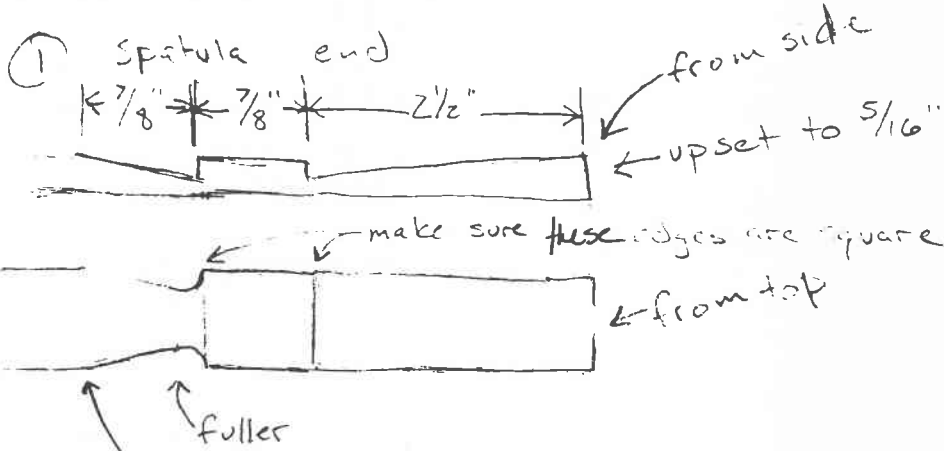 ① Spatula end
from side
7/8" 7/8" 2 1/2"
upset to 5/16"
make sure these edges are square
from top
fuller